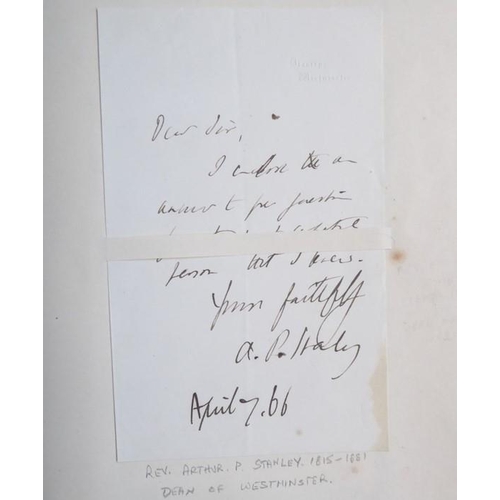 Deanery
Westminster
Dear Sir,
I enclose the an
answer to yr question
person that I know.
Yours faithfully
A. P. Stanley
April 7. 66
REV. ARTHUR. P. STANLEY. 1815-1881
DEAN OF WESTMINSTER.